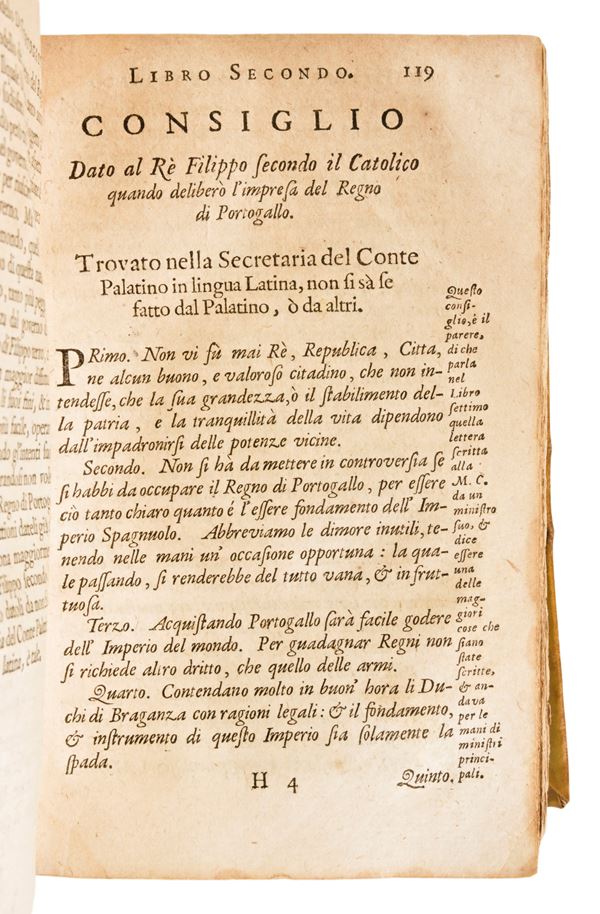 LIBRO SECONDO. 119
CONSIGLIO
Dato al Rè Filippo ſecondo il Catolico
quando deliberò l'impreſa del Regno
di Portogallo.
Trovato nella Secretaria del Conte
Palatino in lingua Latina, non ſi sà ſe
fatto dal Palatino, ò da altri.
PRimo. Non vi fù mai Rè, Republica, Citta,
ne alcun buono, e valoroſo citadino, che non in-
tendeſſe, che la ſua grandezza, ò il ſtabilimento del-
la patria, e la tranquillità della vita dipendono
dall'impadronirſi delle potenze vicine.
Secondo. Non ſi hà da mettere in controverſia ſe
ſi habbi da occupare il Regno di Portogallo, per eſſere
ciò tanto chiaro quanto é l'eſſere fondamento dell'Im-
perio Spagnuolo. Abbreviamo le dimore inutili, te-
nendo nelle mani un' occaſione opportuna : la qua-
le paſſando, ſi renderebbe del tutto vana, & infrut-
tuoſa.
Terzo. Acquiſtando Portogallo ſarà facile godere
dell'Imperio del mondo. Per guadagnar Regni non
ſi richiede altro dritto, che quello delle armi.
Quarto. Contendano molto in buon' hora li Du-
chi di Braganza con ragioni legali : & il fondamento,
& inſtrumento di queſto Imperio ſia ſolamente la
ſpada.
H 4
Quinto.
Queſto
conſi-
glio, è il
parere,
di che
parla
nel
Libro
ſettimo
quella
lettera
ſcritta
alla
M. C.
da un
miniſtro
ſuo, &
dice
eſſere
una
delle
mag-
giori
coſe che
ſiano
ſtate
ſcritte,
& an-
dava
per le
mani di
miniſtri
princi-
pali.